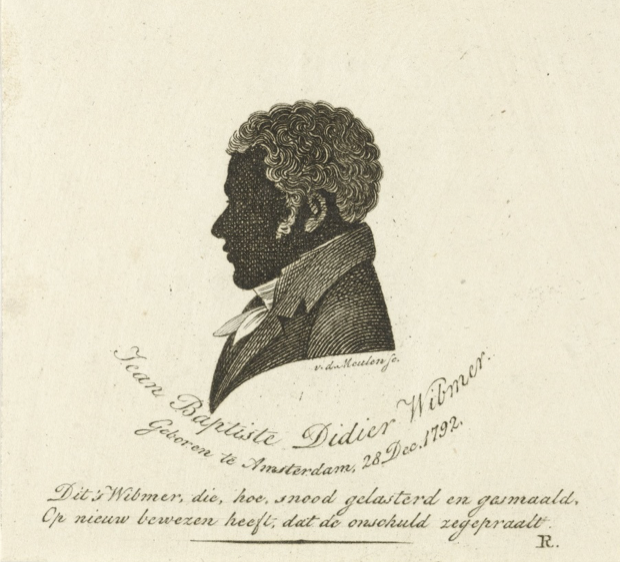 v. d. Meulen sc.
Jean Baptiste Didier Wibmer.
Geboren te Amsterdam, 28 Dec. 1792.
Dit's Wibmer, die, hoe snood gelasterd en gesmaald,
Op nieuw bewezen heeft, dat de onschuld zegepraalt.
R.